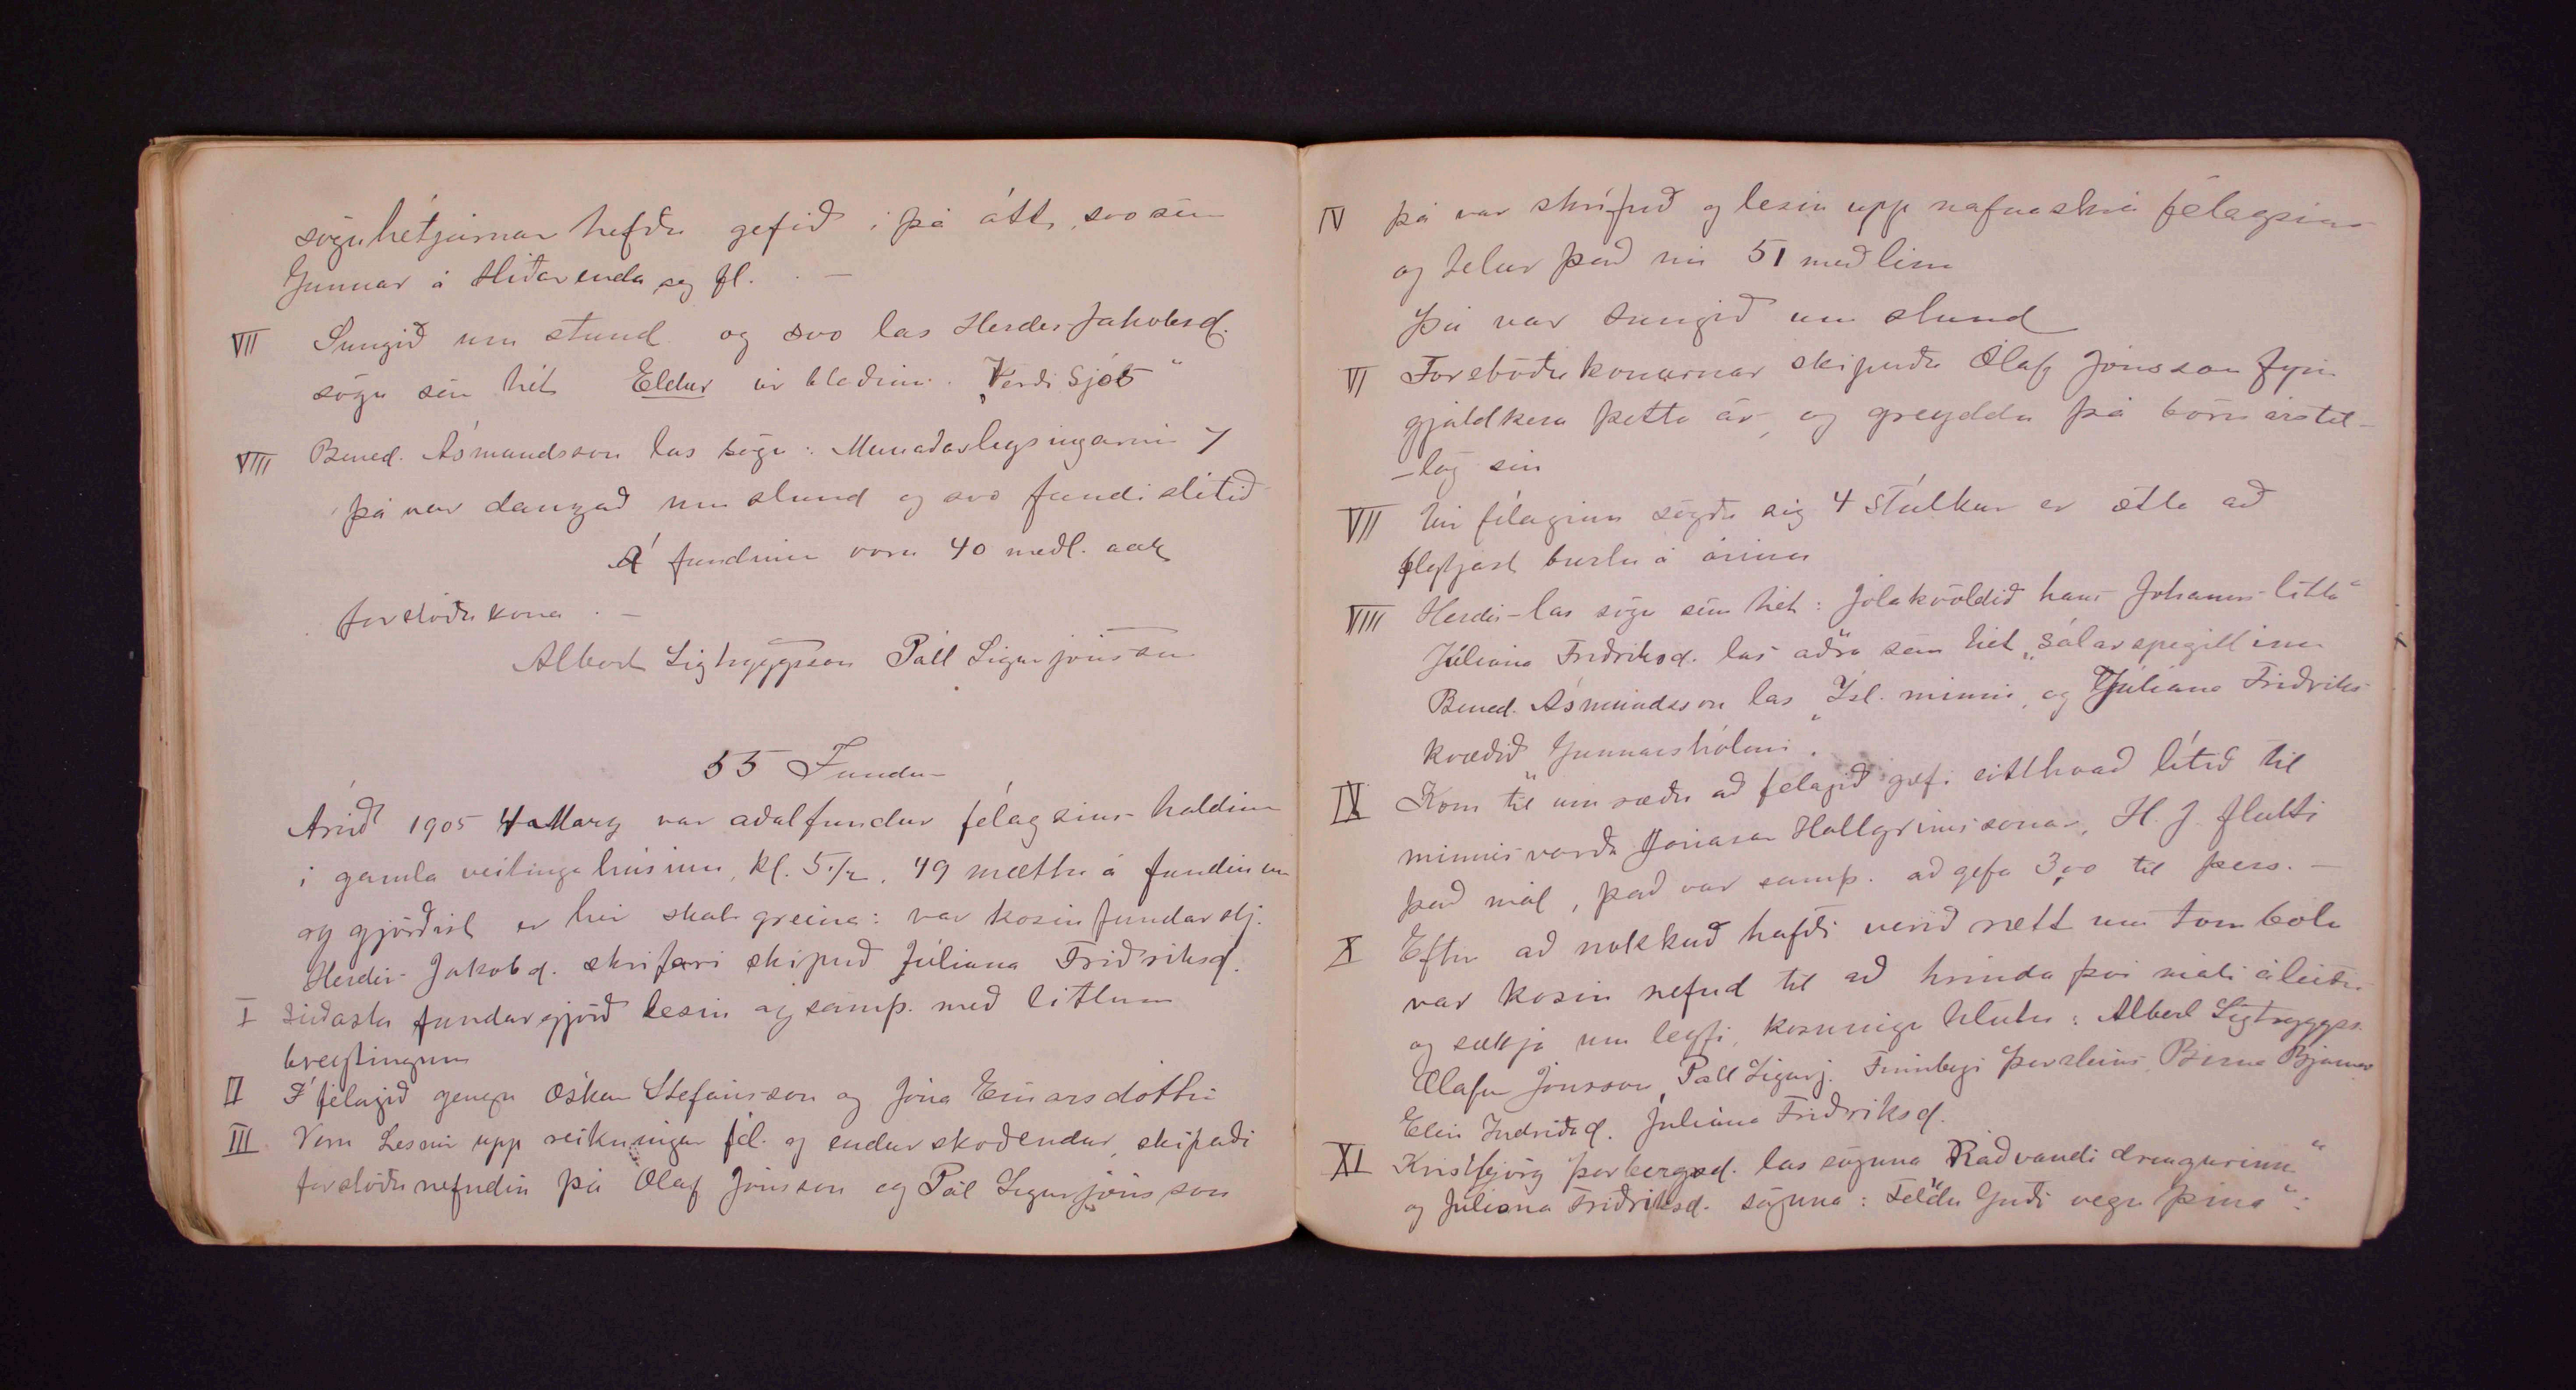 söguhétjurnar hefðu gefið i þá átt, svo sem
Gunnar á Hlíðarenda og fl. –
VII Sungið um stund og svo las Herdís Jakobsd.
sögu sem hét Eldur úr blaðinu „Verði ljós“
VIII Bened. Ásmundsson las sögu: Munaðarleysingarnir
þá var danzað um stund og svo fundi slitið
Á fundinum voru 40 meðl. auk
forstöðukona. –
Albert Sigtryggsson Páll Sigurjónsson
55 Fundur
Árið 1905 4 Marz var aðalfundur félagsins haldinn
i gamla veitingahúsinu, kl. 5 1/2. 49 mættu á fundinum
og gjörðist er hér skal greina: var kosin fundarstj.
Herdís Jakobd. skrifari skipuð Júliana Friðriksd.
I Síðasta fundargjörð lesin og samþ. með litlum
breytingum
II Í félagið gengu Óskar Stefánsson og Jóna Einarsdóttir
III Voru Lesnir upp reikningar fél. og endurskoðendur, skipaði
forstöðunefndin þá Ólaf Jónsson og Pál Sigurjónsson
IV þá var skrifuð og lesin upp nafnaskrá félagsins
og telur það nú 51 meðlim
Þá var sungið um stund
VI Forstöðukonurnar skipuðu Ólaf Jónsson fyrir
gjaldkera þetta ár, og greyddu þá börn árstil-
-lög sin
VII Úr félaginu sögðu sig 4 Stúlkur er ætla að
flytjast burtu á árinu
VIII Herdís las sögu sem hét: Jólakvöldið hans Jóhanns litla“
Júliana Friðriksd. las aðra sem hét „Sálarspegillinn
Bened. Ásmundsson las „Ísl. minni, og Júliana Friðriks
kvæðið „Gunnarshólmi.
IX Kom til umræðu að félagið gæfi eitthvað lítið til
minnisvarða Jónasar Hallgrímssonar, H. J. flutti
það mál, það var samþ. að gefa 3,00 til þess. –
X Eftir að nokkuð hafði verið rætt um tombólu
var kosin nefnd til að hrinda þvi máli áleiðis
og sækja um leyfi, kosningu hlutu: Albert Sigtryggss.
Ólafur Jónsson, Páll Sigurj. Finnbogi Þorsteins, Birna Bjarnar
Elín Indriðad. Júliana Friðriksd.
XI Kristbjörg Þorbergsd. las söguna Ráðvandi drengurinn“
og Júliana Friðriksd. söguna: Feldu Guði vegu þína“.